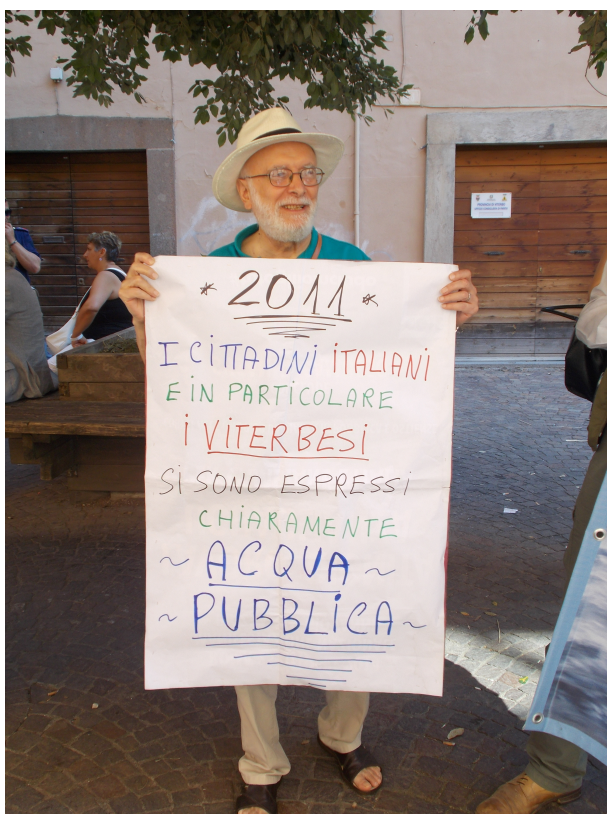 * 2011 *
I CITTADINI ITALIANI
E IN PARTICOLARE
I VITERBESI
SI SONO ESPRESSI
CHIARAMENTE
~ ACQUA ~
~ PUBBLICA ~